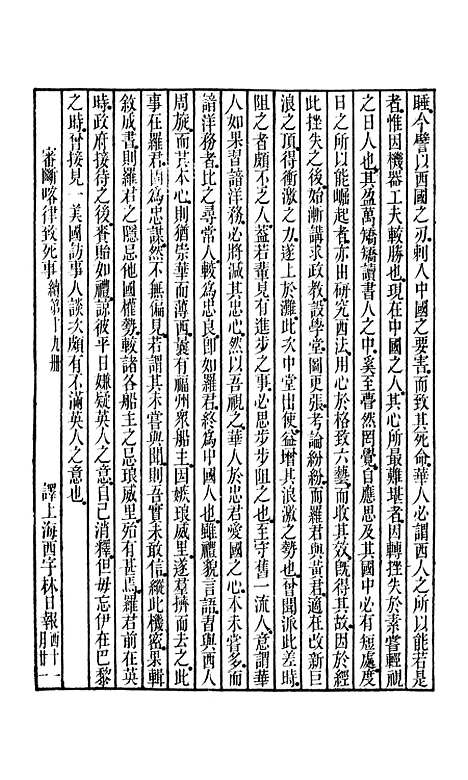 睡今譬以西國之刃刺人中國之要害而致其死命華人必謂西人之所以能若是
者惟因機器工夫較勝也然在中國之人其心所最難堪者因轉挫失於素嘗輕視
之日人也其盈萬矯矯讀書人之中奚至瞢然罔覺自應思及其中國必有短處度
日之所以能崛起者亦由研究西法用心於格致六藝而收其效旣得其故因於經
此挫失之後始漸講求政教設學堂圖更張考論紛紛而羅君與黃君適在改新巨
浪之頂得衝激之力遂上於灘此次中堂出使益增其浪激之勢也曾聞派此差時
阻之者頗不乏人蓋若輩見有進步之事必思步步阻之也至守舊一流人意謂華
人如果習諳洋務必將減其忠心然以吾視之華人於忠君愛國之心本未嘗多而
諳洋務者比之尋常人較爲忠良卽如羅君終爲中國人也雖禮貌言語若與西人
周旋而其本心則猶崇華而薄西曩有福州衆船主因嫉琅威里遂羣擠而去之此
事在羅君固爲忠謀然不無偏見若謂其未嘗與聞則吾實未敢信縱此機密果輯
敘成書則羅君之隱忌他國權勢較諸各船主之忌琅威里殆有甚焉羅君前在英
時政府接待之後賚貽如禮諒彼平日嫌疑英人之意自己消釋但毋忘伊在巴黎
之時曾接見一美國訪事人談次頗有不滿英人之意也
審斷喀律致死事 續第十九册 譯上海西字林日報 西十一月廿一